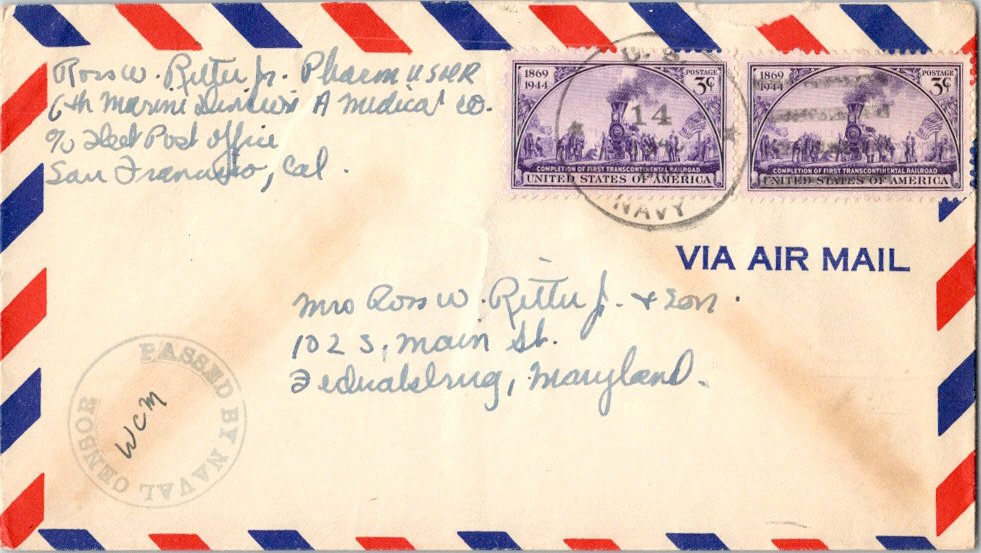 Ross W. Ritter Jr. Pharm USNR
6th Marine Division A Medical Co.
c/o Fleet Post Office
San Francisco, Cal.
1869
1944
POSTAGE
3¢
COMPLETION OF FIRST TRANSCONTINENTAL RAILROAD
UNITED STATES OF AMERICA
U.S.
14
NAVY
1869
1944
POSTAGE
3¢
COMPLETION OF FIRST TRANSCONTINENTAL RAILROAD
UNITED STATES OF AMERICA
VIA AIR MAIL
Mrs Ross W. Ritter Jr. & Son.
102 S. Main St.
Federalsburg, Maryland.
PASSED BY NAVAL CENSOR
WCM